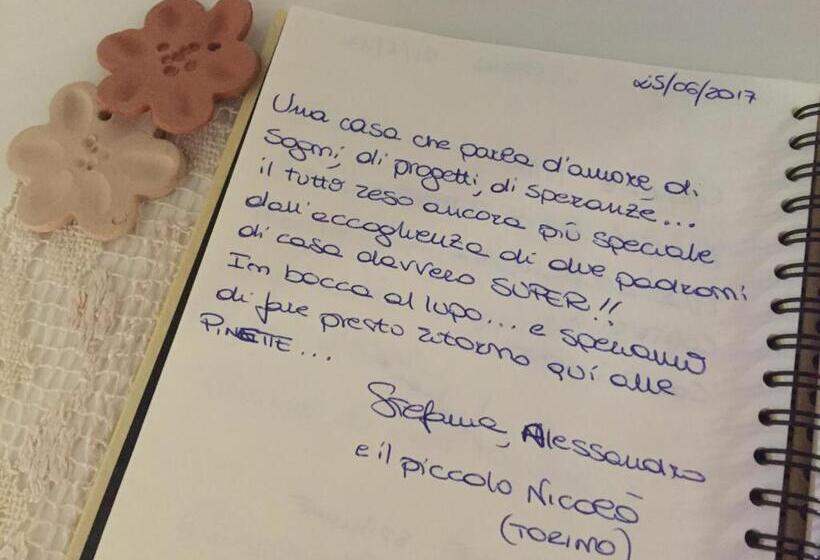 25/06/2017
Una casa che parla d'amore, di
sogni, di progetti, di speranze...
il tutto reso ancora più speciale
dall'accoglienza di due padroni
di casa davvero SUPER!!
In bocca al lupo... e speriamo
di fare presto ritorno quì alle
PINETTE...
Stefania, Alessandro
e il piccolo Nicolò
(TORINO)